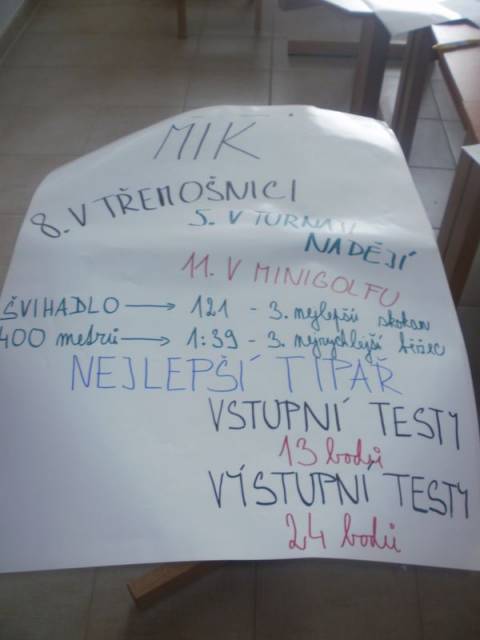 MIK
8. V TŘEMOŠNICI
5. V TURNAJI
NADĚJÍ
11. V MINIGOLFU
ŠVIHADLO → 121 - 3. nejlepší skokan
400 metrů → 1:39 - 3. nejrychlejší běžec
NEJLEPŠÍ TIPAŘ
VSTUPNÍ TESTY
13 bodů
VÝSTUPNÍ TESTY
24 bodů